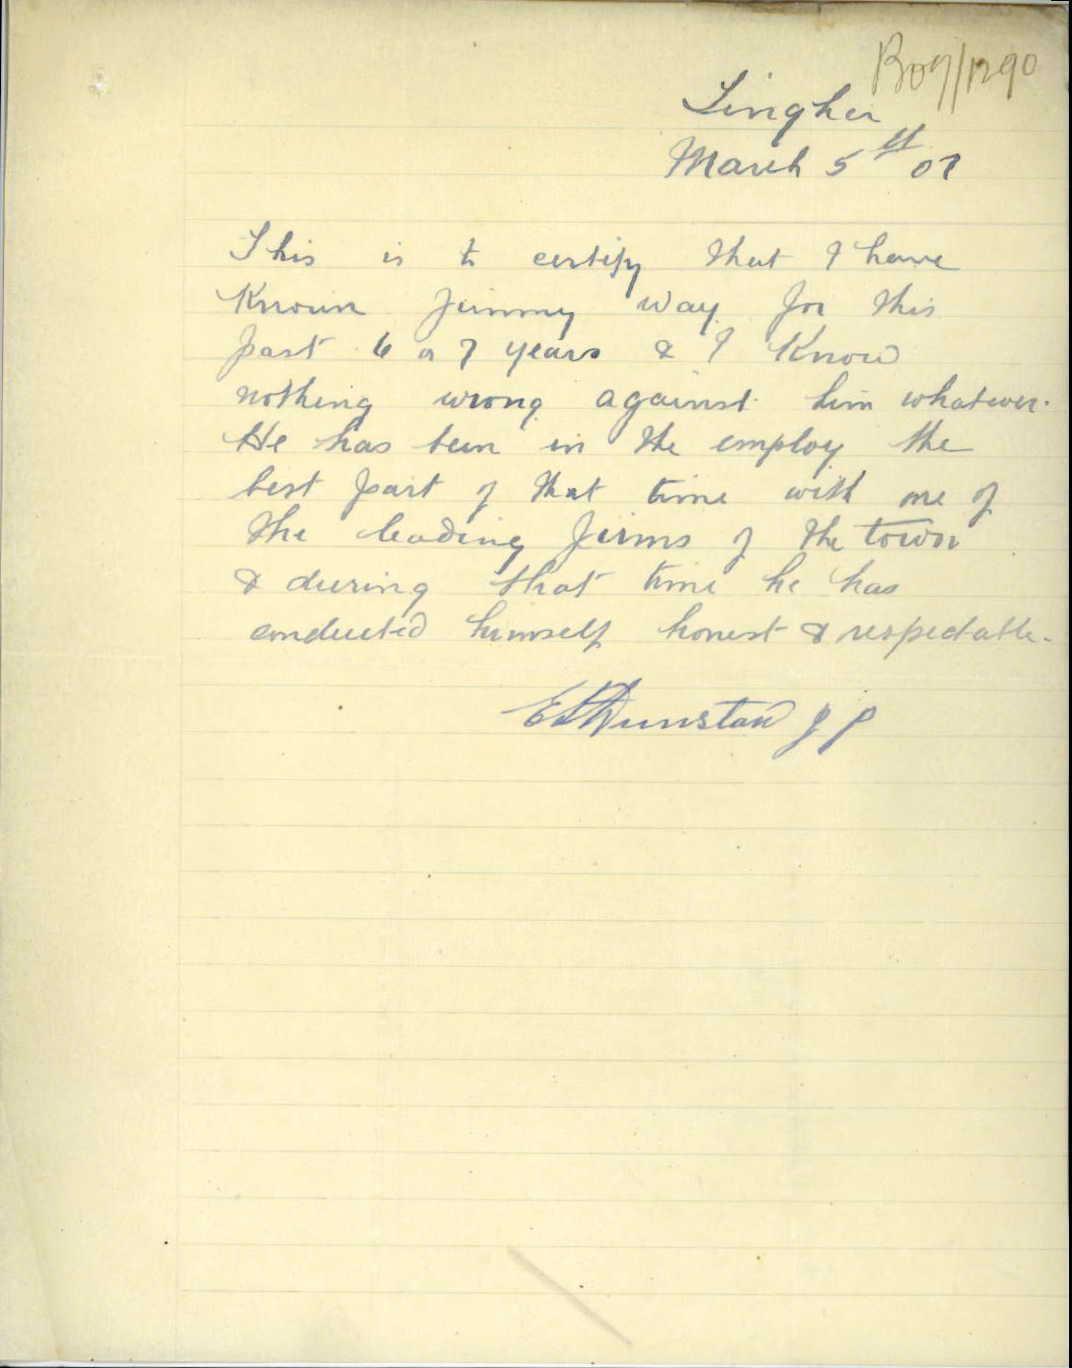 B07/1290
Lingha
March 5th 07
This is to certify that I have
Known Jimmy Way for this
past 6 or 7 years & I Know
nothing wrong against him whatever.
He has been in the employ the
best part of that time with one of
the leading firms of the town
& during that time he has
conducted himself honest & respectable.
Dunstan J P